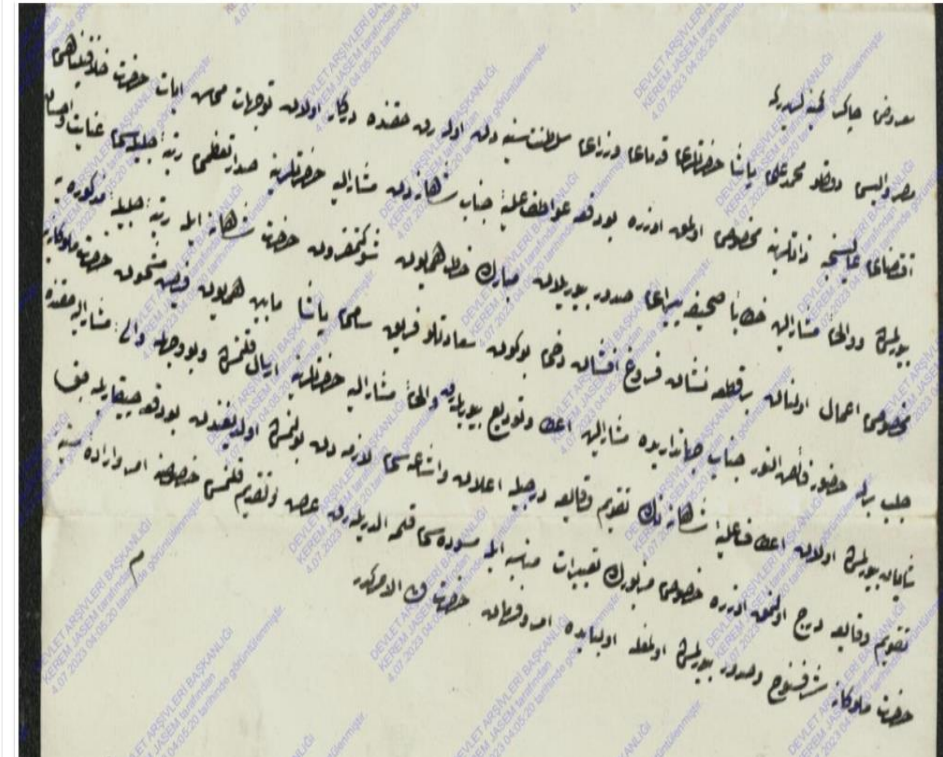 معروض چاكر كمينه لريدر كه
مصر واليسى دولتلو محمد على پاشا حضرتلرى قدماى وزراى سلطنت سنيه دن اولهرق حقنده دركار اولان توجهات محاسن ايات حضرت خلافتپناهى
اقتضاى عاليسنجه ذاتلرينه مخصوص اولمق اوزره بو دفعه عواطف عليه جناب شاهانه دن مشار اليه حضرتلرينه صدارت عظمى رتبه جليله سى عنايت واحسان
بيورلمش ووالئ مشار اليه خطابا صحيفه پيراى صدور بيوريلان مبارك خط همايون شوكتمقرون حضرت شاهانه ايله رتبه جليله مذكوره يه
مخصوص اعمال اولنان بر قطعه نشان فروغ افشان دخى بوكون سعادتلو فريق سامى پاشا مابين همايون فيض مشحون حضرت ملوكانه يه
جلب ايله حضور فائض النور جناب جهانداريده مشار اليه اعطا وتوديع بيوريلهرق والئ مشار اليه حضرتلرينه ارسال قلنمش وبو وجهله والئ مشار اليه حقنده
شايان بيورلمش اولان اعطاف عليه شاهانه نك تقويم وقايعه درجيله اعلان واشاعه سى لازمه دن بولنمش اولديغندن بو دفعه چيقاريله جق
تقويم وقايعه درج اولنمق اوزره خصوص مزبورك تعبيرات مناسبه ايله مسوده سى قلمه الديريلهرق عرض وتقديم قلنمسى خصوصنه امر واراده سنيه
حضرت ملوكانه شرفسنوح وصدور بيورلمش اولمغله اولبابده امر وفرمان حضرت من له الامركدر
م
DEVLET ARŞİVLERİ BAŞKANLIĞI
KEREM JASEM tarafından
4.07.2023 04:05:20 tarihinde görüntülenmiştir.